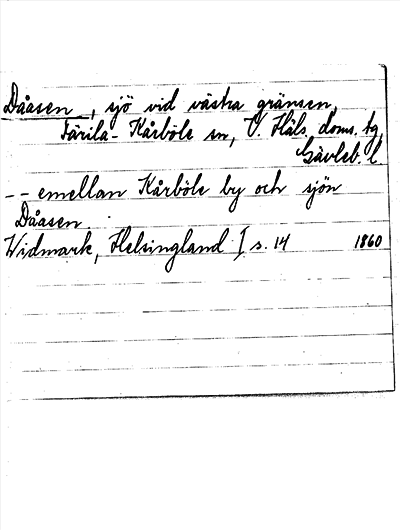 Dåasen, sjö vid västra gränsen,
Färila-Kårböle sn, V. Häls. doms. tg,
Gävleb. l.
-- emellan Kårböle by och sjön
Dåasen.
Widmark, Helsingland I s. 14 1860